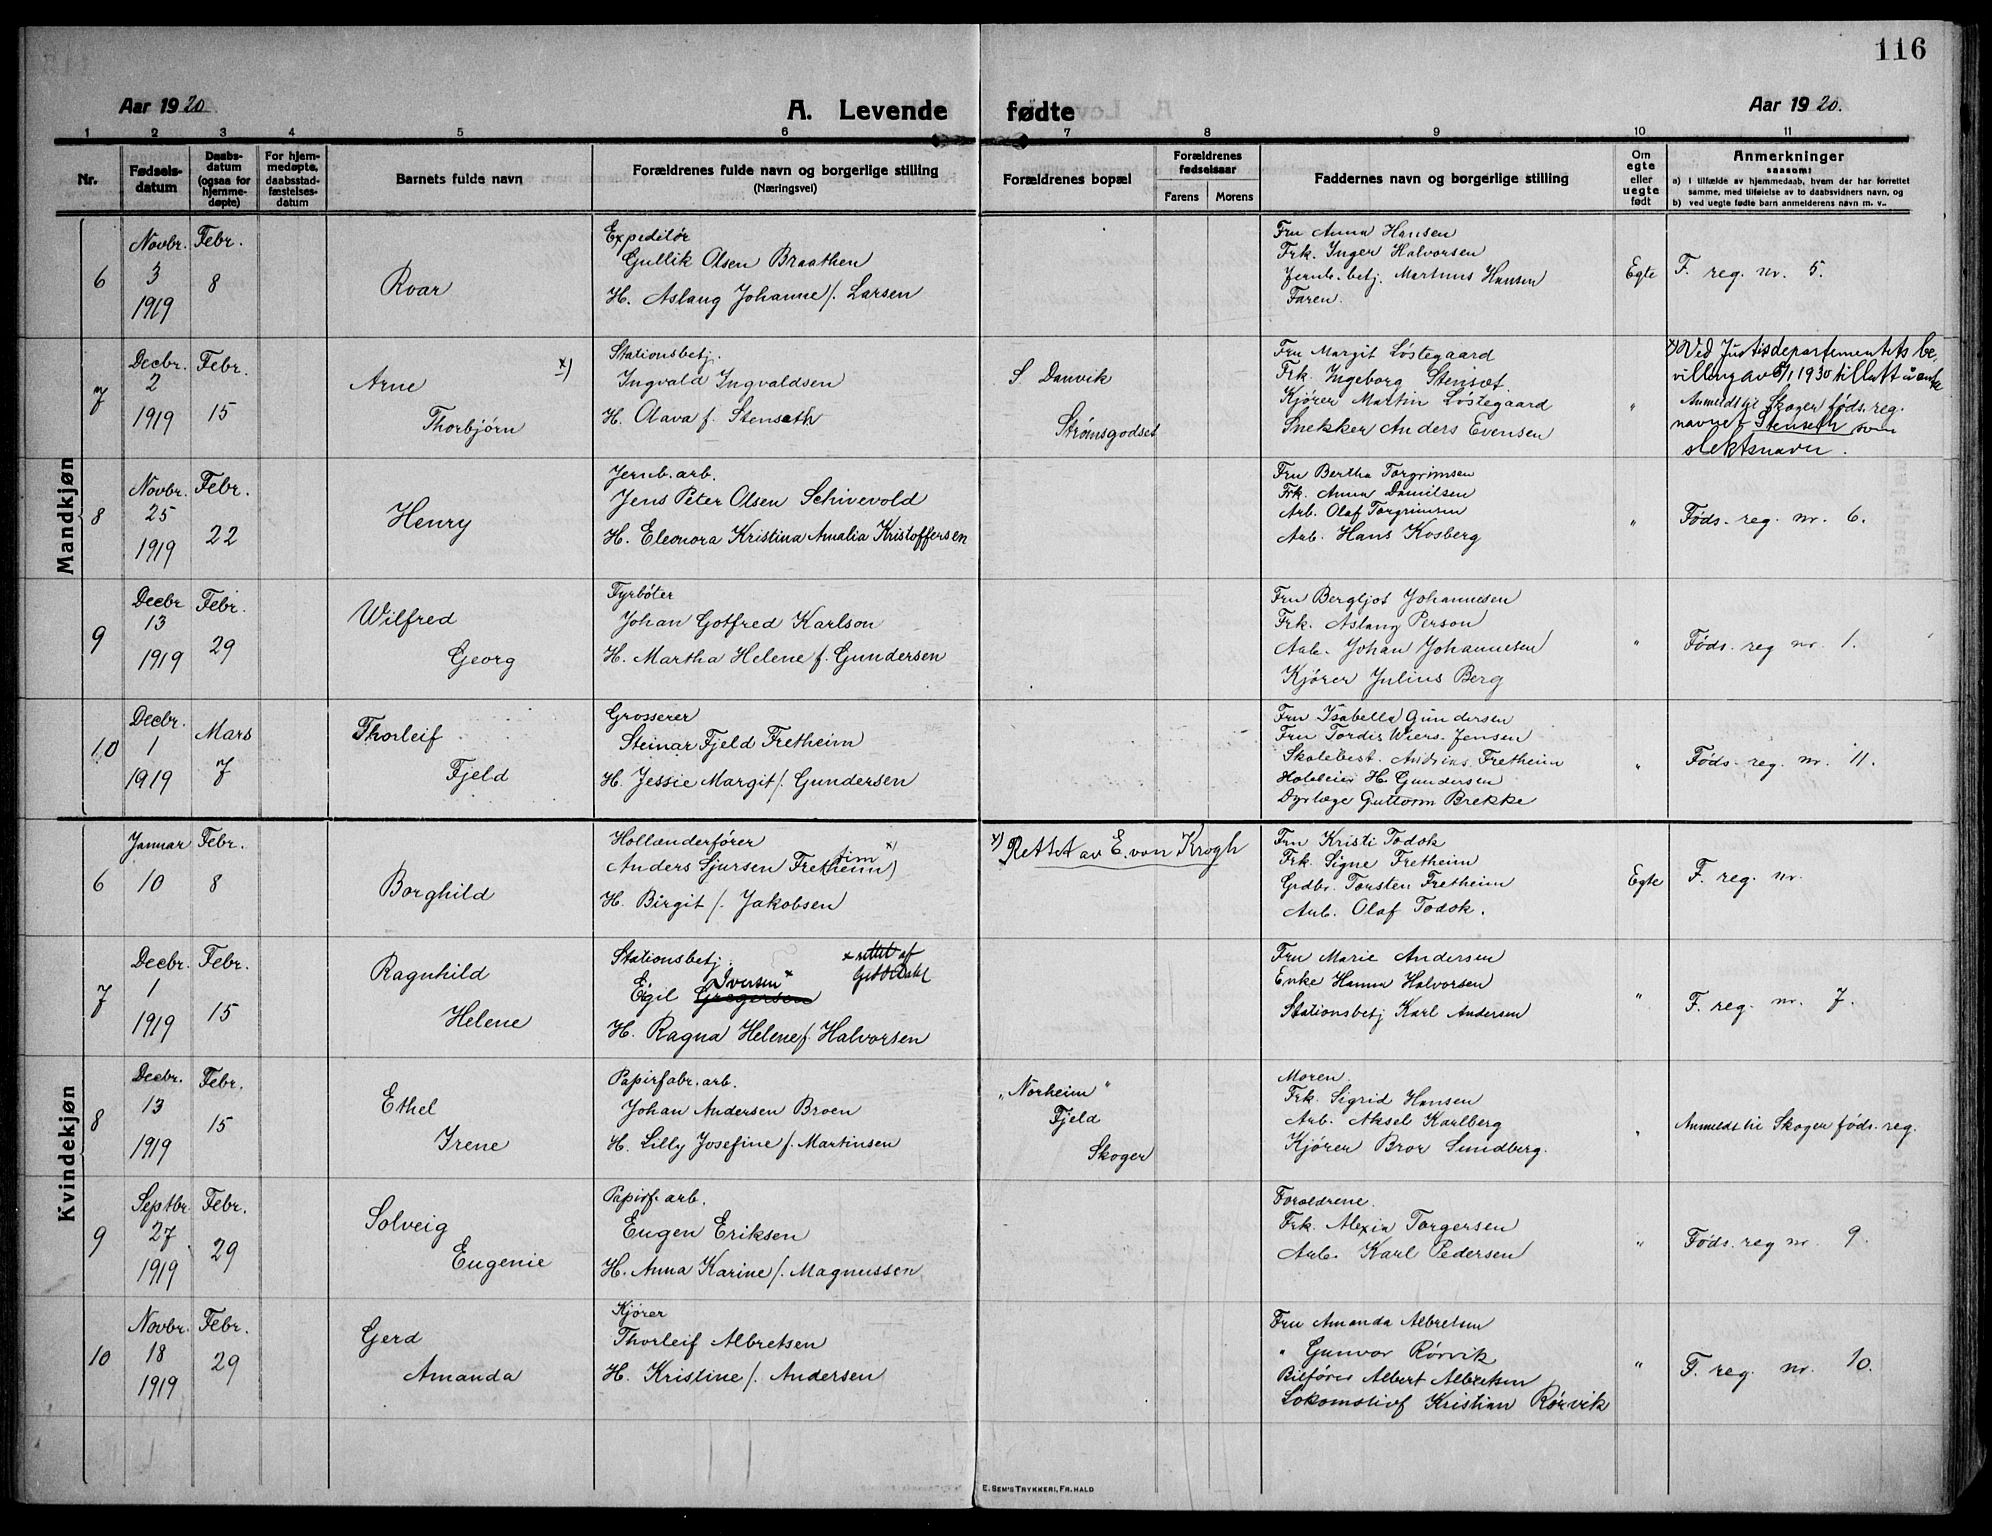 116
Aar 1920.
A. Levende
fødte
Aar 1920.
1 2 3 4 5 6 7 8 9 10 11
Nr.
Fødsels-
datum
Daabs-
datum
(ogsaa for
hjemme-
døpte)
For hjem-
medøpte,
daabsstad-
fæstelses-
datum
Barnets fulde navn
Forældrenes fulde navn og borgerlige stilling
(Næringsvei)
Forældrenes bopæl
Forældrenes
fødselsaar
Farens Morens
Faddernes navn og borgerlige stilling
Om
egte
eller
uegte
født
Anmerkninger
saasom:
a) i tilfælde av hjemmedaab, hvem der har forrettet
samme, med tilføielse av to daabsvidners navn, og
b) ved uegte fødte barn anmelderens navn m. v..
Mandkjøn
6
Novbr.
3
1919
Febr.
8
Roar
Expeditør
Gullik Olsen Braathen
H. Aslaug Johanne f. Larsen
Fru Anna Hansen
Frk. Inger Halvorsen
Jernb. betj. Martinus Hansen
Faren.
Egte
F. reg. nr. 5.
7
Decbr.
2
1919
Febr.
15
Arne x)
Thorbjørn
Stationsbetj.
Ingvald Ingvaldsen
H. Olava f. Stenseth
S. Danvik
Strømsgodset
Fru Margit Løstegaard
Frk. Ingeborg Stenset
Kjører Martin Løstegaard
Snekker Anders Evensen
"
x) Ved Justisdepartementets be-
villing av 8/1 1930 tillatt å anta
Anmeldt til Skoger føds. reg.
navnet Stenseth som
slektsnavn.
8
Novbr.
25
1919
Febr.
22
Henry
Jernb. arb.
Jens Peter Olsen Schivevold
H. Eleonora Kristina Amalia Kristoffersen
Fru Bertha Torgrimsen
Frk. Anna Danielsen
Arb. Olaf Torgrimsen
Arb. Hans Kosberg
"
Føds. reg. nr. 6.
9
Decbr
13
1919
Febr.
29
Wilfred
Georg
Fyrbøter
Johan Gotfred Karlson
H. Martha Helene f. Gundersen
Fru Bergljot Johannesen
Frk. Aslaug Person
Arb. Johan Johannesen
Kjører Julius Berg
"
Føds. reg nr. 1.
10
Decbr.
1
1919
Mars
7
Thorleif
Fjeld
Grosserer
Steinar Fjeld Fretheim
H. Jessie Margit f. Gundersen
Fru Isabella Gundersen
Fru Tordis Wiers-Jensen
Skolebest. Andreas Fretheim
Hoteleier H. Gundersen
Dyrlæge Guttorm Brekke
"
Føds. reg. nr. 11.
Kvindekjøn
6
Januar
10
Febr.
8
Borghild
Hollænderfører
Anders Sjursen Fretheim) tim x)
H. Birgit f. Jakobsen
x) Rettet av E. von Krogh
Fru Kristi Todok
Frk. Signe Fretheim
Grdbr. Torsten Fretheim
Arb. Olaf Todok.
Egte
F. reg. nr.
7
Decbr.
1
1919
Febr.
15
Ragnhild
Helene
Stationsbetj.
Iversen x
Egil Gregersen
x rettet af
H. Ragna Helene f. Halvorsen
Fru Marie Andersen
Enke Hanna Halvorsen
Stationsbetj Karl Andersen
"
F. reg. nr. 7.
8
Decbr.
13
1919
Febr.
15
Ethel
Irene
Papirfabr. arb.
Johan Andersen Broen
H. Lilly Josefine f. Martinsen
"Norheim"
Fjeld
Skoger
Moren.
Frk. Sigrid Hansen
Arb. Aksel Karlberg
Kjører Bror Sundberg.
"
Anmeldt til Skoger føds. reg.
9
Septbr
27
1919
Febr.
29
Solveig
Eugenie
Papirf. arb.
Eugen Eriksen
H. Anna Karine f. Magnussen
Forældrene
Frk. Alexia Torgersen
Arb. Karl Pedersen
"
Føds. reg nr. 9.
10
Novbr.
18
1919
Febr.
29
Gerd
Amanda
Kjører
Thorleif Albretsen
H. Kristine f. Andersen
Fru Amanda Albretsen
" Gunvor Rørvik
Bilfører Albert Albretsen
Lokomotivf Kristian Rørvik
"
F. reg. nr. 10.
E. Sem's Trykkeri, Fr.hald